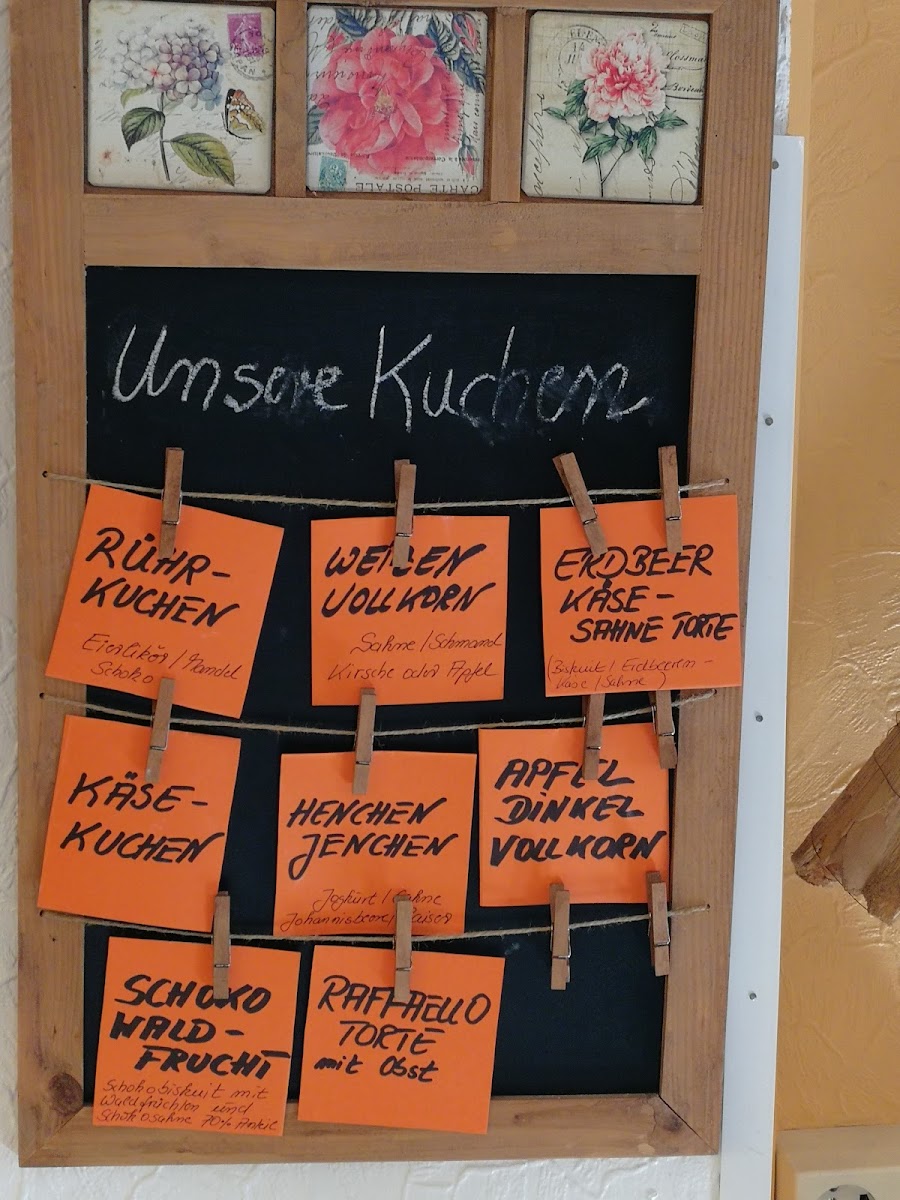 CARTE POSTALE
Unsere Kuchen
RÜHR-
KUCHEN
Eierlikör / Mandel
Schoko
WEIZEN
VOLLKORN
Sahne / Schmand
Kirsche oder Apfel
ERDBEER
KÄSE-
SAHNE TORTE
(Biskuit / Erdbeeren-
Käse / Sahne)
KÄSE-
KUCHEN
HENCHEN
JENCHEN
Joghurt / Sahne
Johannisbeere /
APFEL
DINKEL
VOLLKORN
SCHOKO
WALD-
FRUCHT
Schokobiskuit mit
Waldfrüchten und
Schokosahne 70%
RAFFAELLO
TORTE
mit Obst